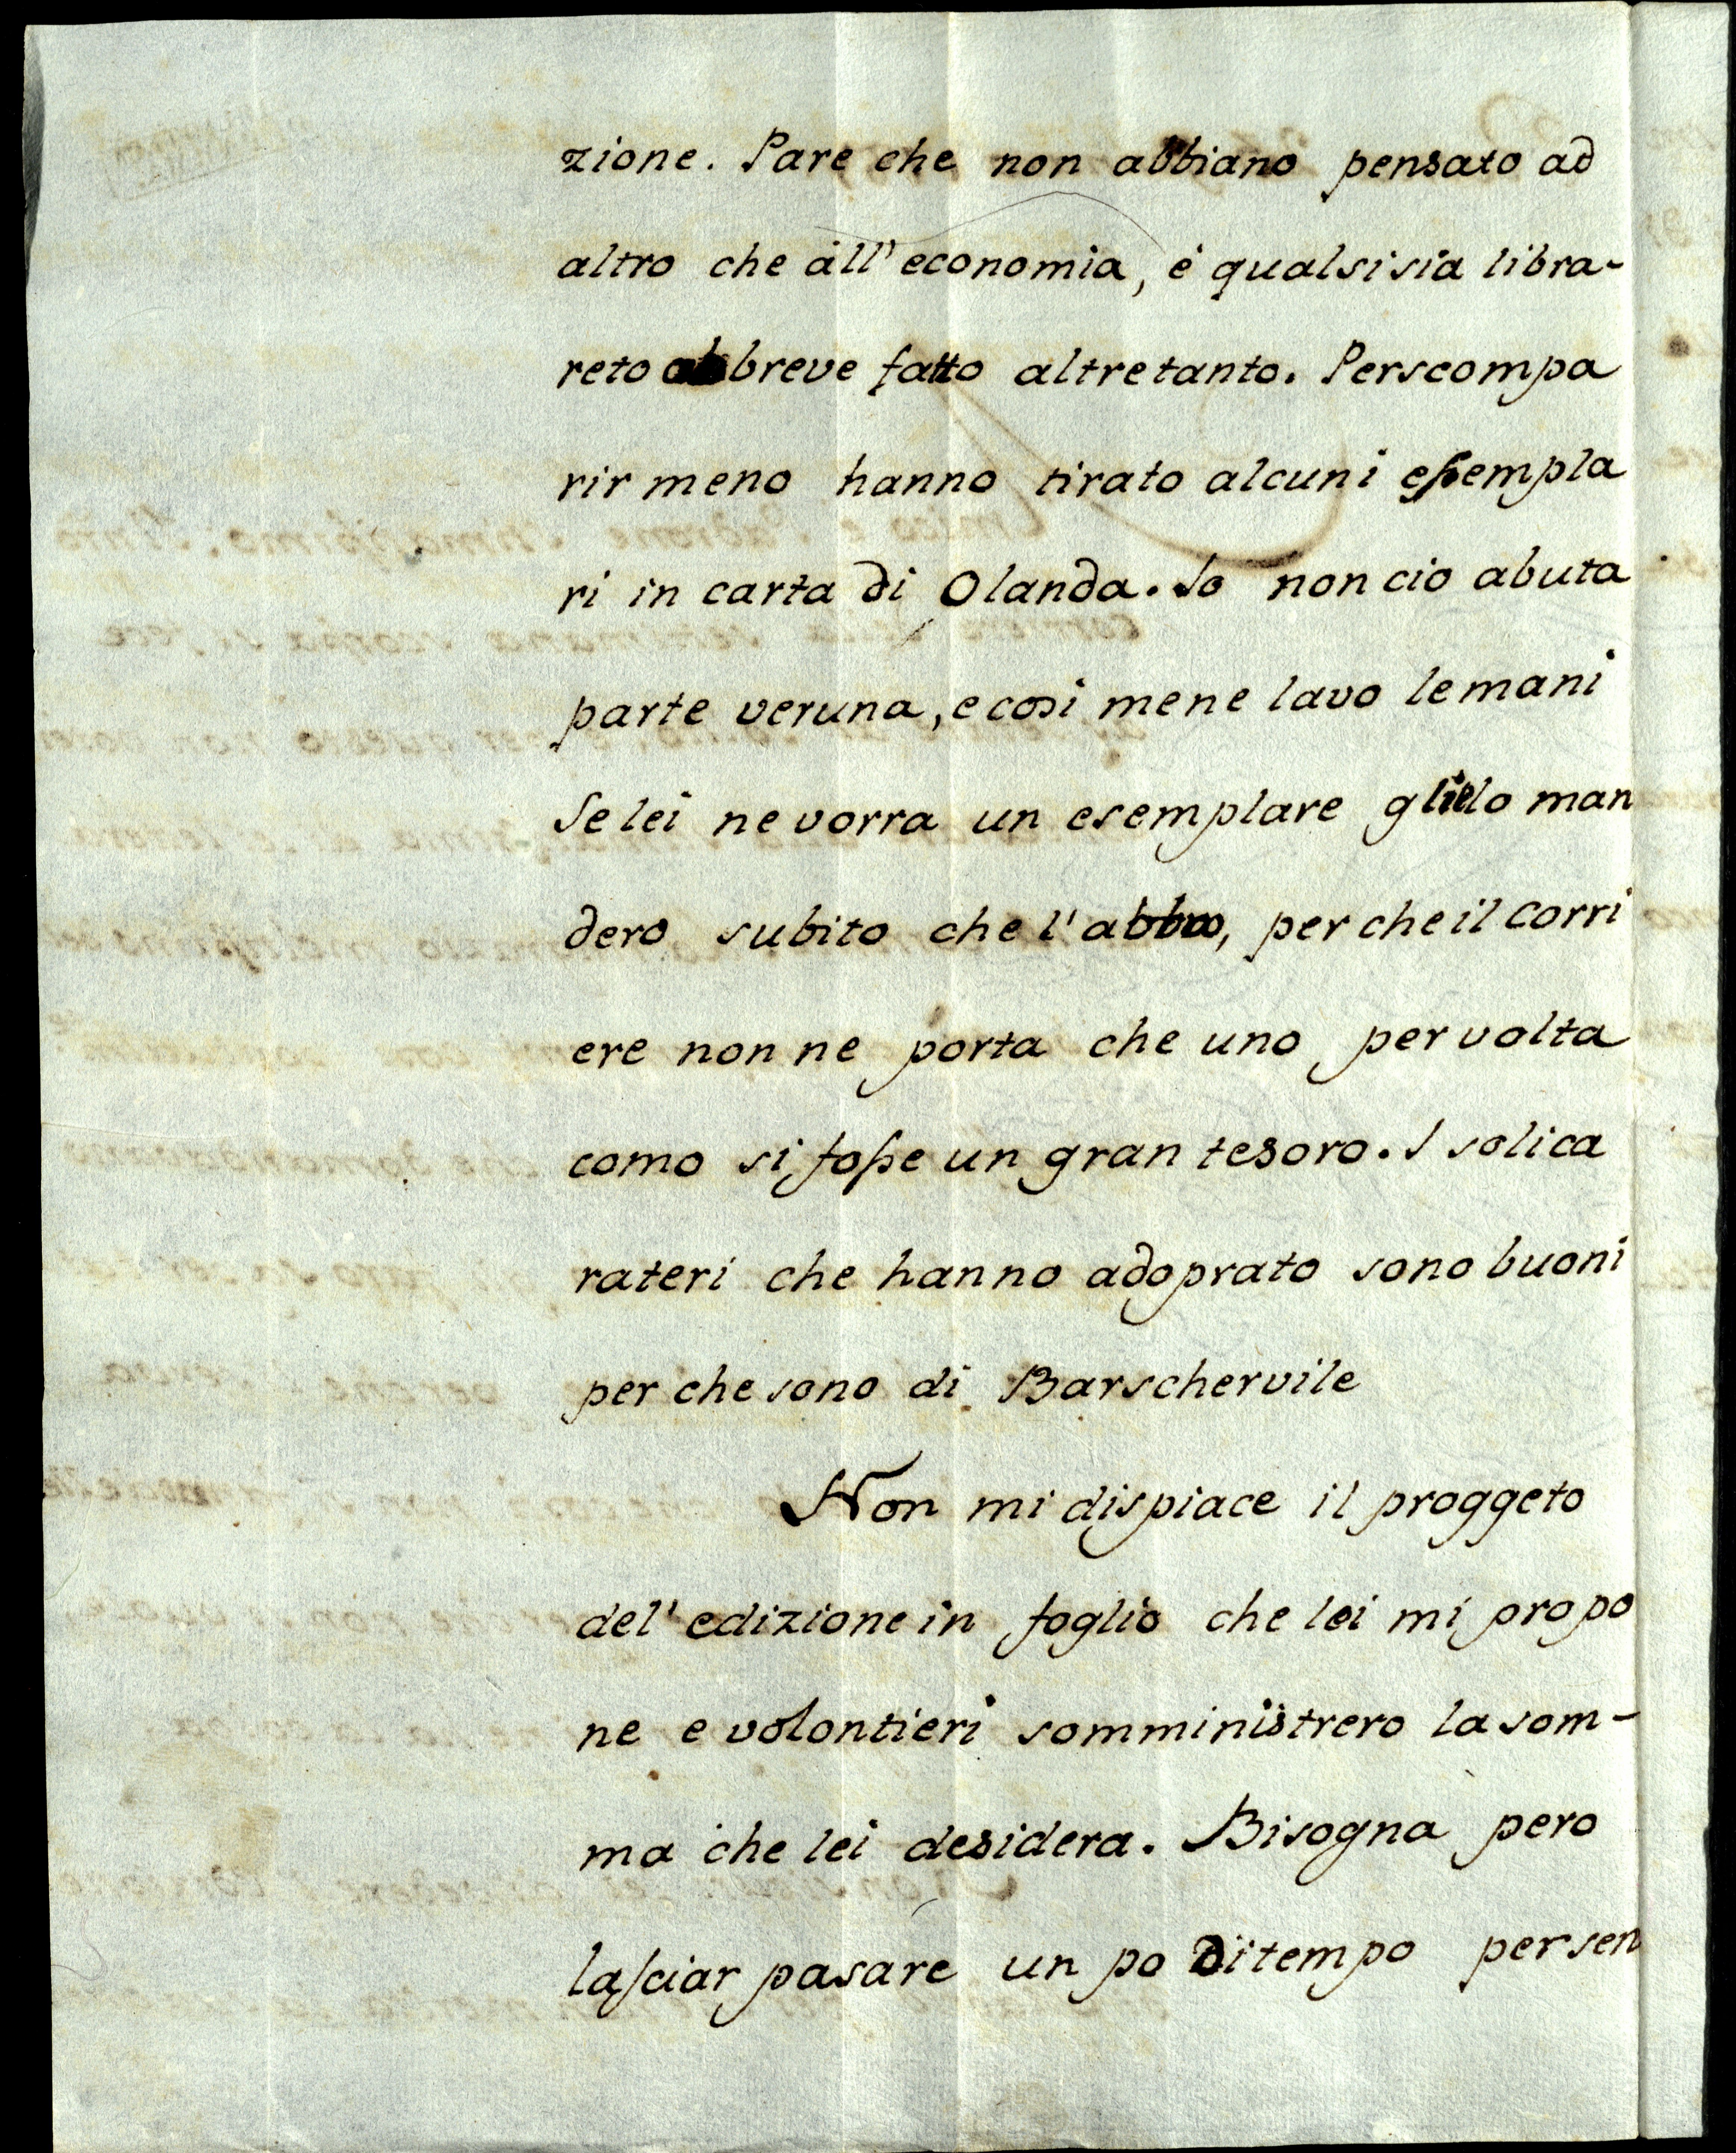 zione. Pare che non abbiano pensato ad
altro che all' economia, è qualsisia libra-
reto abbreve fatto altretanto. Perscompa
rir meno hanno tirato alcuni essempla
ri in carta di Olanda. Io non cio abuta
parte veruna, e cosi mene lavo lemani
Se lei ne vorra un esemplare glielo man
dero subito che l' abbia, per che il corri
ere non ne porta che uno per volta
como si fosse un gran tesoro. I soli ca
rateri che hanno adoprato sono buoni
per che sono di Barschervile
Non mi dispiace il proggeto
del' edizione in foglio che lei mi propo
ne e volontieri somministrero la som-
ma che lei desidera. Bisogna pero
lasciar pasare un po di tempo per sen